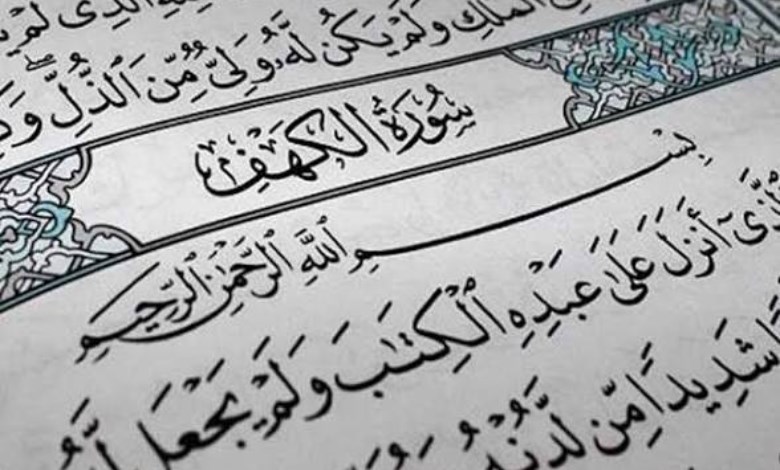 ٱلَّذِى لَمْ
ٱلْمُلْكِ وَلَمْ يَكُن لَّهُۥ وَلِىٌّ مِّنَ ٱلذُّلِّ ۖ
سُورَةُ الكَهْفِ
بِسْمِ ٱللَّهِ ٱلرَّحْمَٰنِ ٱلرَّحِيمِ
أَنزَلَ عَلَىٰ عَبْدِهِ ٱلْكِتَٰبَ وَلَمْ يَجْعَل
شَدِيدًا مِّن لَّدُنْهُ